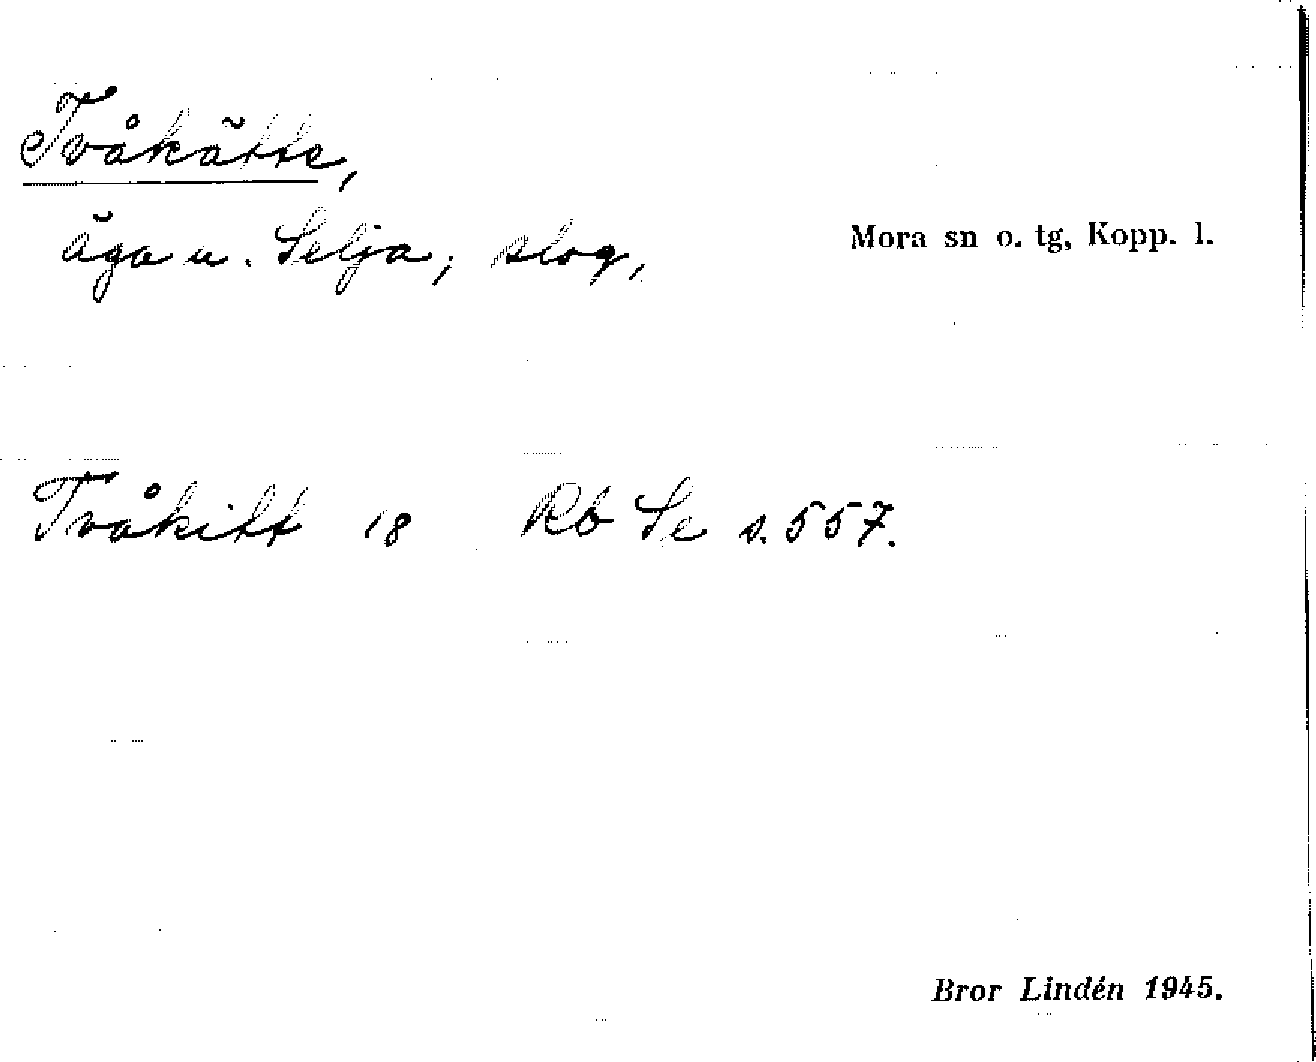 Tvåkätte,
äga u. Selja; slog,
Mora sn o. tg, Kopp. l.
Tvåkitt 18 Rb Se s. 557.
Bror Lindén 1945.